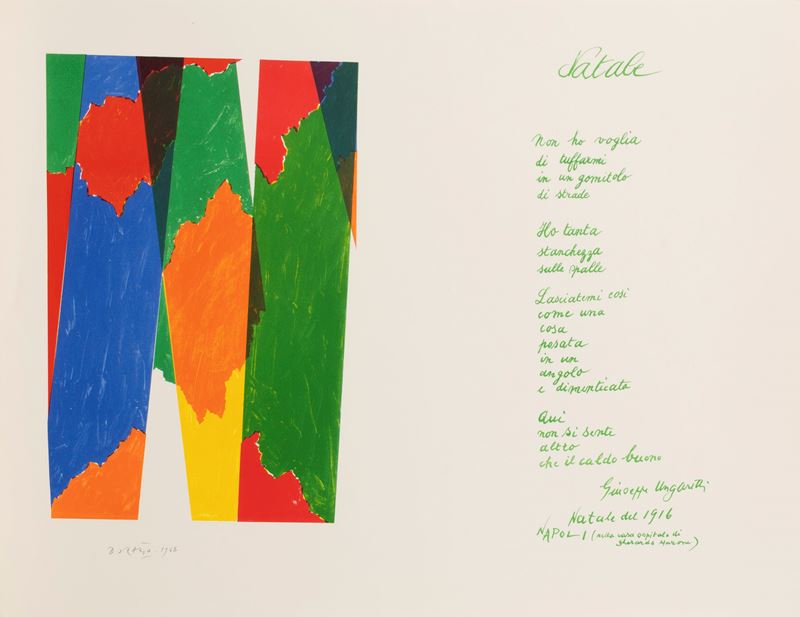 Natale
Non ho voglia
di tuffarmi
in un gomitolo
di strade
Ho tanta
stanchezza
sulle spalle
Lasciatemi così
come una
cosa
posata
in un
angolo
e dimenticata
Qui
non si sente
altro
che il caldo buono
Giuseppe Ungaretti
Natale del 1916
NAPOLI (nella casa ospitale di
Gherardo Marone)